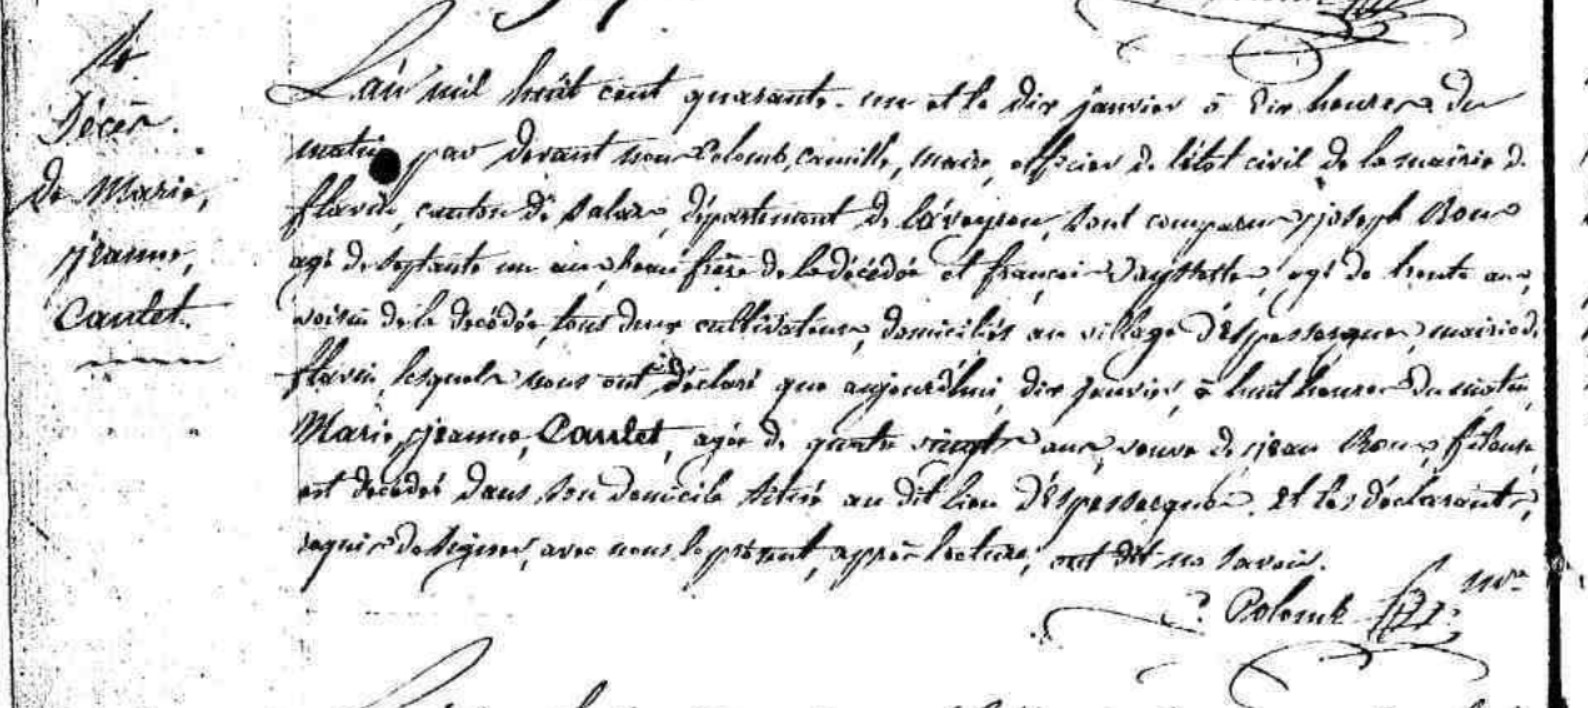 Décès
de Marie,
jeanne,
Caulet.
L'an mil huit cent quarante-un et le dix janvier à dix heures du
matin par devant nous Colomb, Camille, maire, officier de l'état civil de la mairie de
flavin, canton de Salars, département de l'aveyron, sont comparus joseph Roux
agé de septante un ans, beau frère de la décédée et françois Vayssette, agé de trente ans,
voisin de la décédée, tous deux cultivateurs, domiciliés au village d'Espessergues, mairie de
flavin, lesquels nous ont déclaré que aujourd'hui, dix janvier, à huit heures du matin,
Marie, jeanne, Caulet, agée de quatre vingts ans, veuve de jean Roux, fileuse,
est décédée dans son domicile situé au dit lieu d'Espessergues. Et les déclarants,
requis de signer, avec nous le présent, après lecture, ont dit ne savoir.
Colomb mre